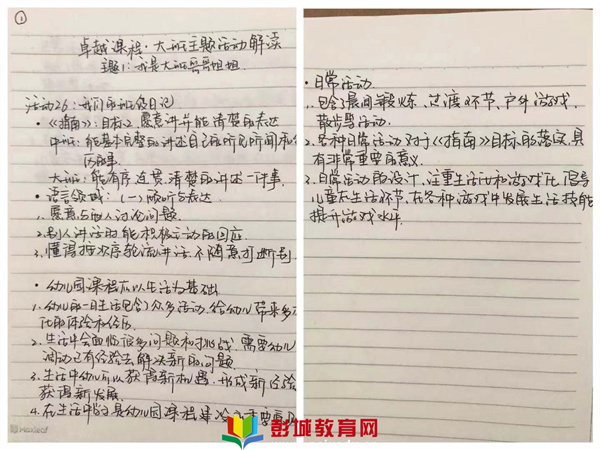 ①
卓越课程·大班主题活动解读
主题1:我是大班哥哥姐姐
活动26:我们的班级日记
·《指南》:目标2.愿意讲并能清楚的表达
中班:能基本完整的讲述自己的所见所闻和经
历的事.
大班:能有序、连贯、清楚的讲述一件事.
·语言领域:(一)倾听与表达
1.愿意与他人讨论问题.
2.别人讲话时能积极主动的回应.
3.懂得按次序轮流讲话.不随意打断别
·幼儿园课程应以生活为基础
1.幼儿的一日生活包含了众多活动.给幼儿带来多
化的体验和经历.
2.生活中会面临许多问题和挑战.需要幼儿
调动已有经验去解决新的问题.
3.生活中幼儿可以获得新机遇.形成新经验
获得新发展.
4.在生活中 是幼儿园课程建设 重要
·日常活动
1.包含了晨间锻炼、过渡环节、户外游戏、
散步等活动.
2.各种日常活动对于《指南》目标的落实,具
有非常重要的意义.
3.日常活动的设计,注重生活化和游戏化,倡导
儿童在生活环节,在各种游戏中发展生活技能
提升游戏水平.
彭城教育网